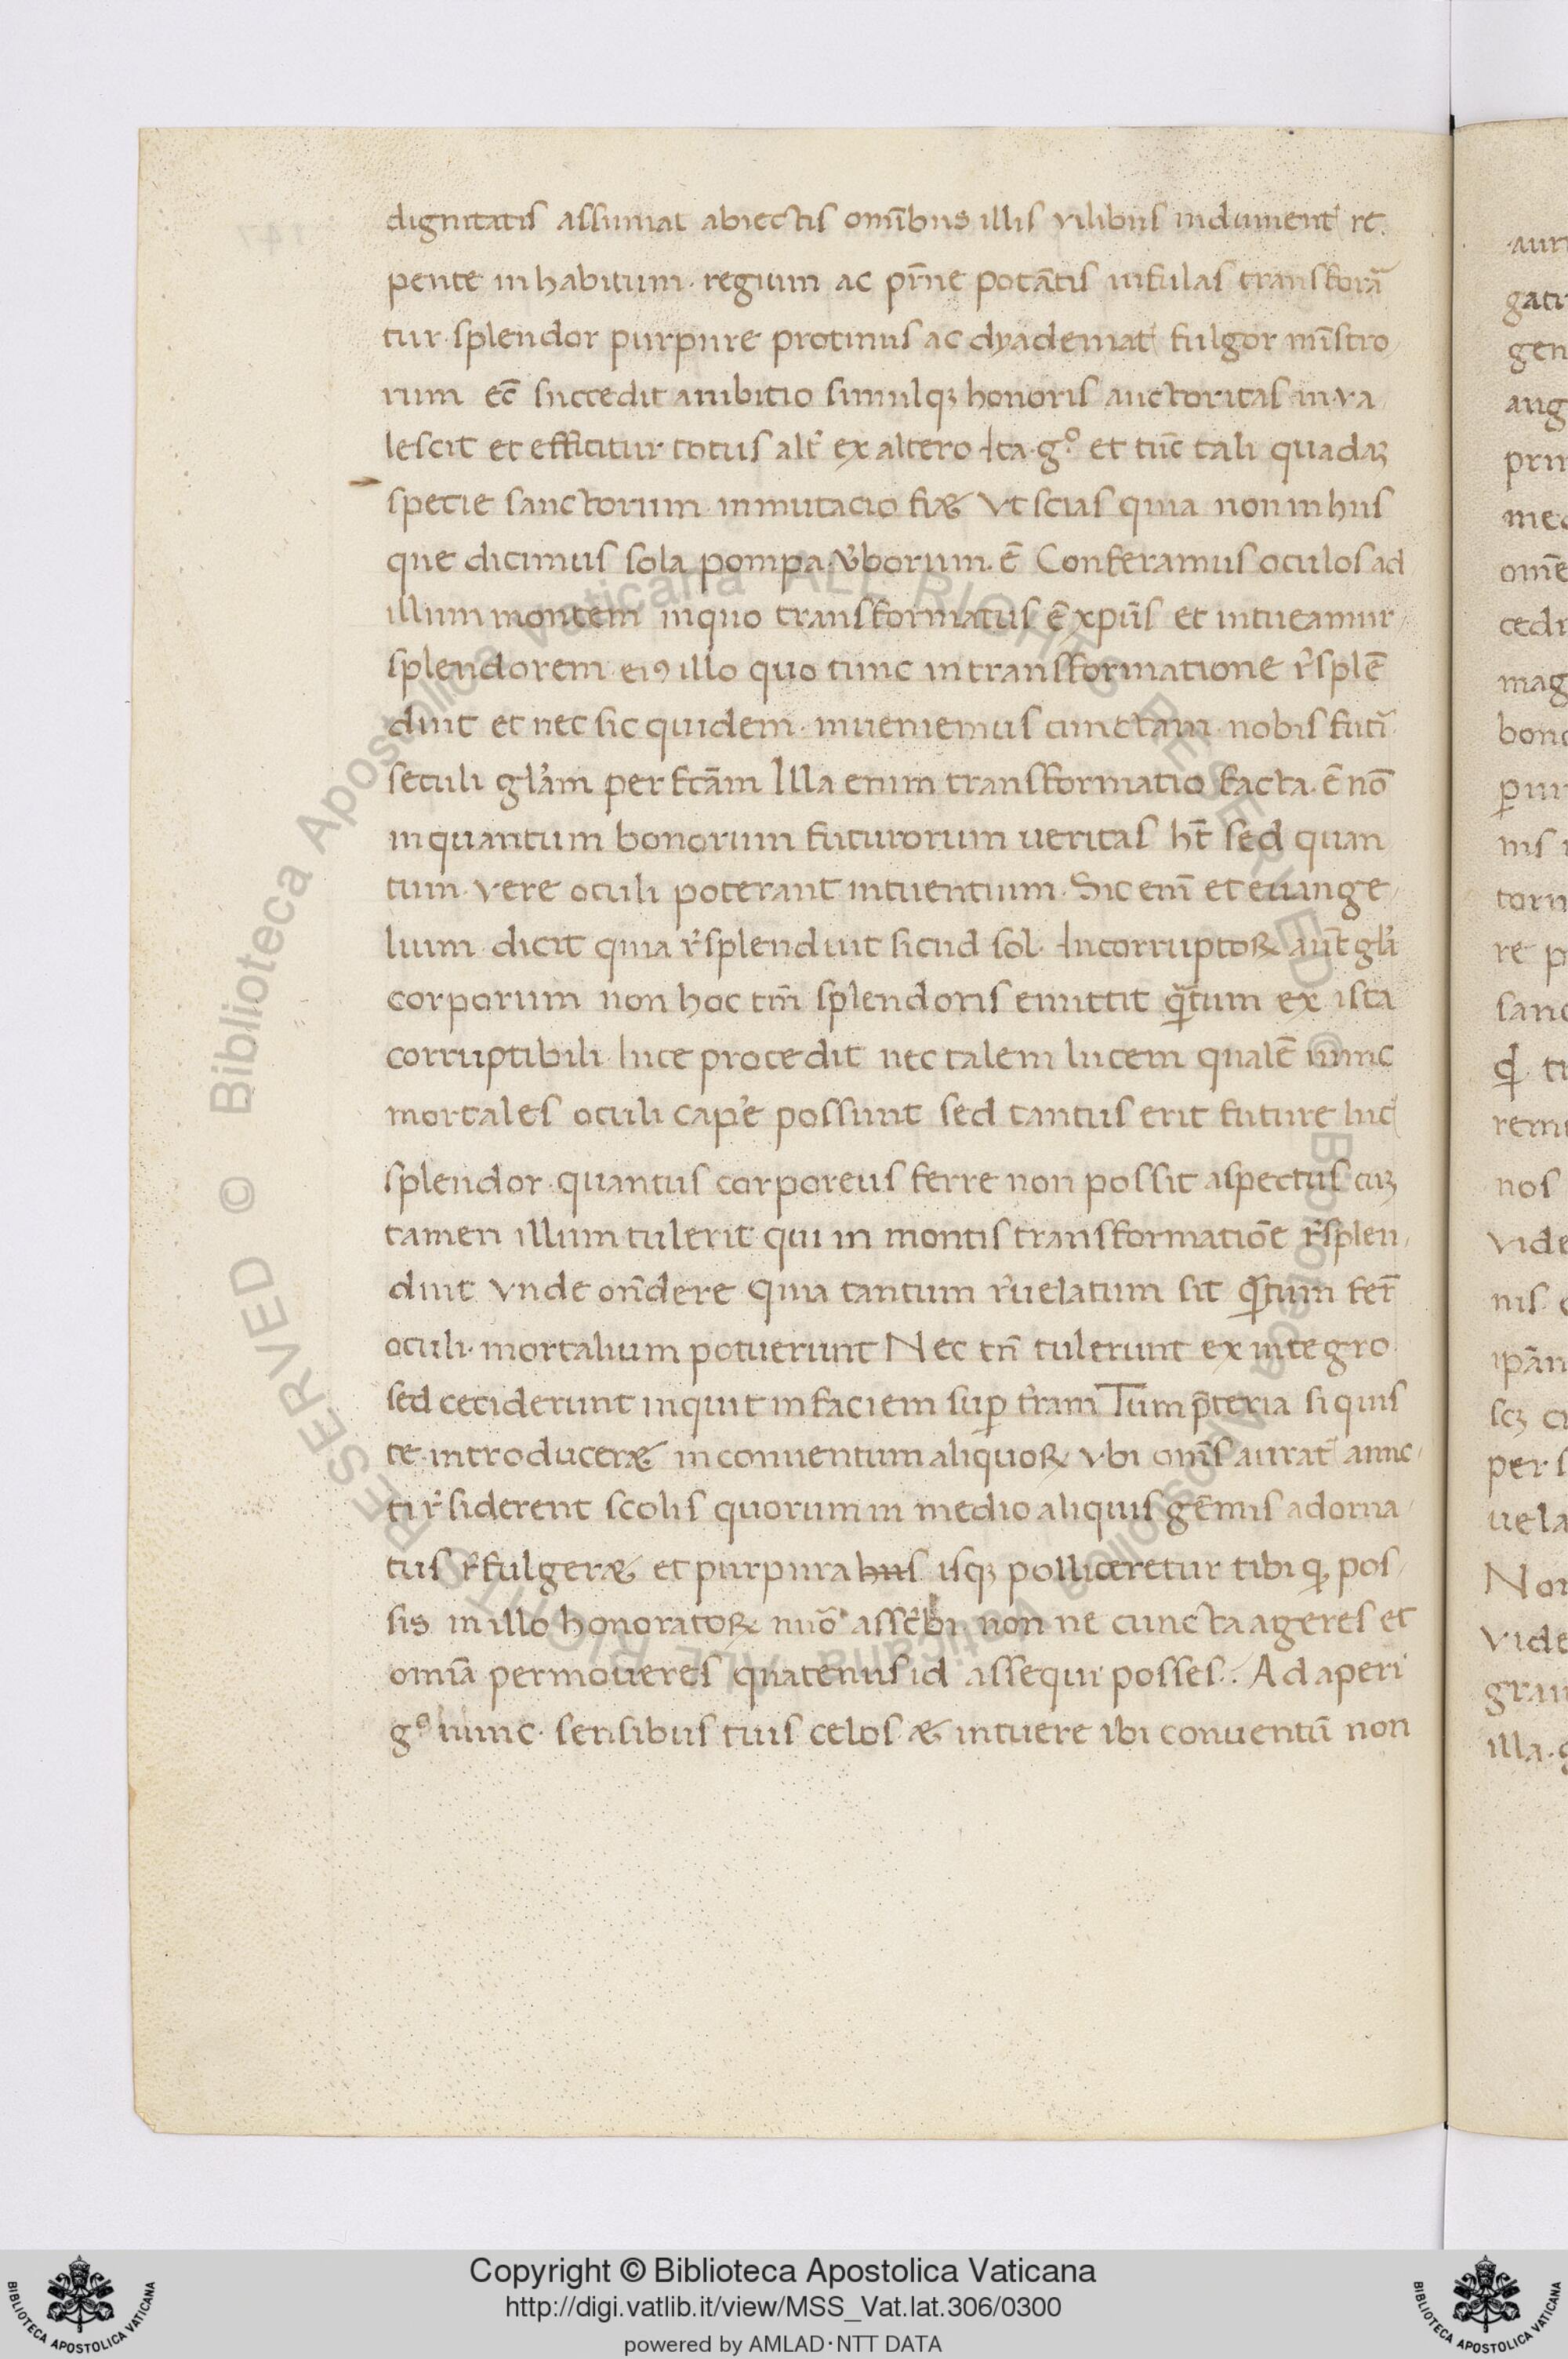 dignitatis assumat abiectis om̄ibus illis vilibus indument̉ re
pente in habitum · regium ac pr̄ne potātis infulas transforā
tur · splendor purpure protinus ac dyademat̉ fulgor mīstro
rum ec̄ succedit ambitio simulqꝫ honoris auctoritas inva
lescit et efficitur totus alt̉ ex altero Ita · g° et tūc tali quadaꝫ
specie sanctorum inmutacio fiæ Vt scias quia non in hiis
que dicimus sola pompa · v̉borum · ē Conferamus oculos ad
illum montem in quo transformatus ē xpūs et intueamur
splendorem eiꝯ illo quo tunc in transformatione r̉splē
duit et nec sic quidem · inueniemus cunctam · nobis futỉ
seculi gl̉am perfcām Illa enim transformatio facta · ē nō
in quantum bonorum futurorum ueritas ht̄ sed quan
tum · vere oculi poterant intuentium · Sic enī et euange
lium · dicit quia r̉splenduit sicud sol · Incorruptoꝝ aut̄ gl̉a
corporum non hoc tm̄ splendoris emittit qᷓtum ex ista
corruptibili luce procedit nec talem lucem qualē nunc
mortales oculi cap̉e possunt sed tantus erit future luc̉
splendor · quantus corporeus ferre non possit aspectus cuꝫ
tamen illum tulerit qui in montis transformatiōe r̉splen
duit Vnde on̄dere quia tantum r̉uelatum sit qᷓtum ferr̄
oculi · mortalium potuerunt Nec tn̄ tulerunt ex integro
sed ceciderunt inquit in faciem suꝑ tr̉am Tum p̄teria si quis
te · introduceræ in conuentum aliquoꝝ vbi om̄s aurat̉ amic
ti r̉siderent scolis quorum in medio aliquis gēmis adorna
tus r̉fulgeræ et purpura hiis isqꝫ polliceretur tibi ꝙ pos
sis in illo honoratoꝝ nūo assc̉bi non ne cuncta ageres et
omīa permoueres quatenus id assequi posses · Adaperi
g° nunc · sensibus tuis celos · æ intuere ibi conuentū non
Copyright © Biblioteca Apostolica Vaticana
http://digi.vatlib.it/view/MSS_Vat.lat.306/0300
powered by AMLAD·NTT DATA